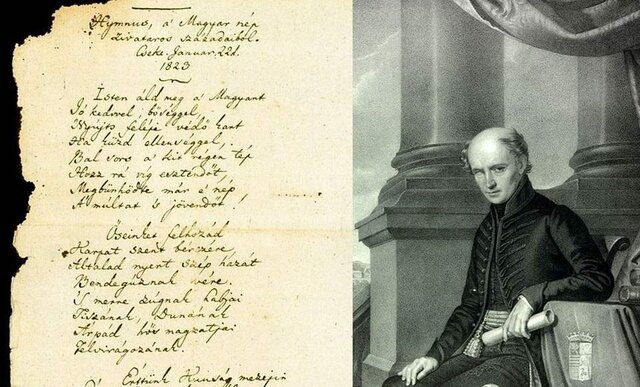 Hymnus, a' Magyar nép
zivataros századaiból.
Cseke. Januar. 22d.
1823
Isten áld meg a' Magyart
Jó kedvvel, bőséggel,
Nyújts feléje védő kart
Ha küzd ellenséggel,
Bal sors a' kit régen tép
Hozz rá víg esztendőt,
Megbűnhődte már e' nép
A' múltat 's jövendőt!
Őseinket felhozád
Kárpát szent bérczére,
Általad nyert szép hazát
Bendegúznak vére.
'S merre zúgnak habjai
Tiszának, Dunának
Árpád hős magzatjai
Felvirágozának.
Értünk Kunság mezejin